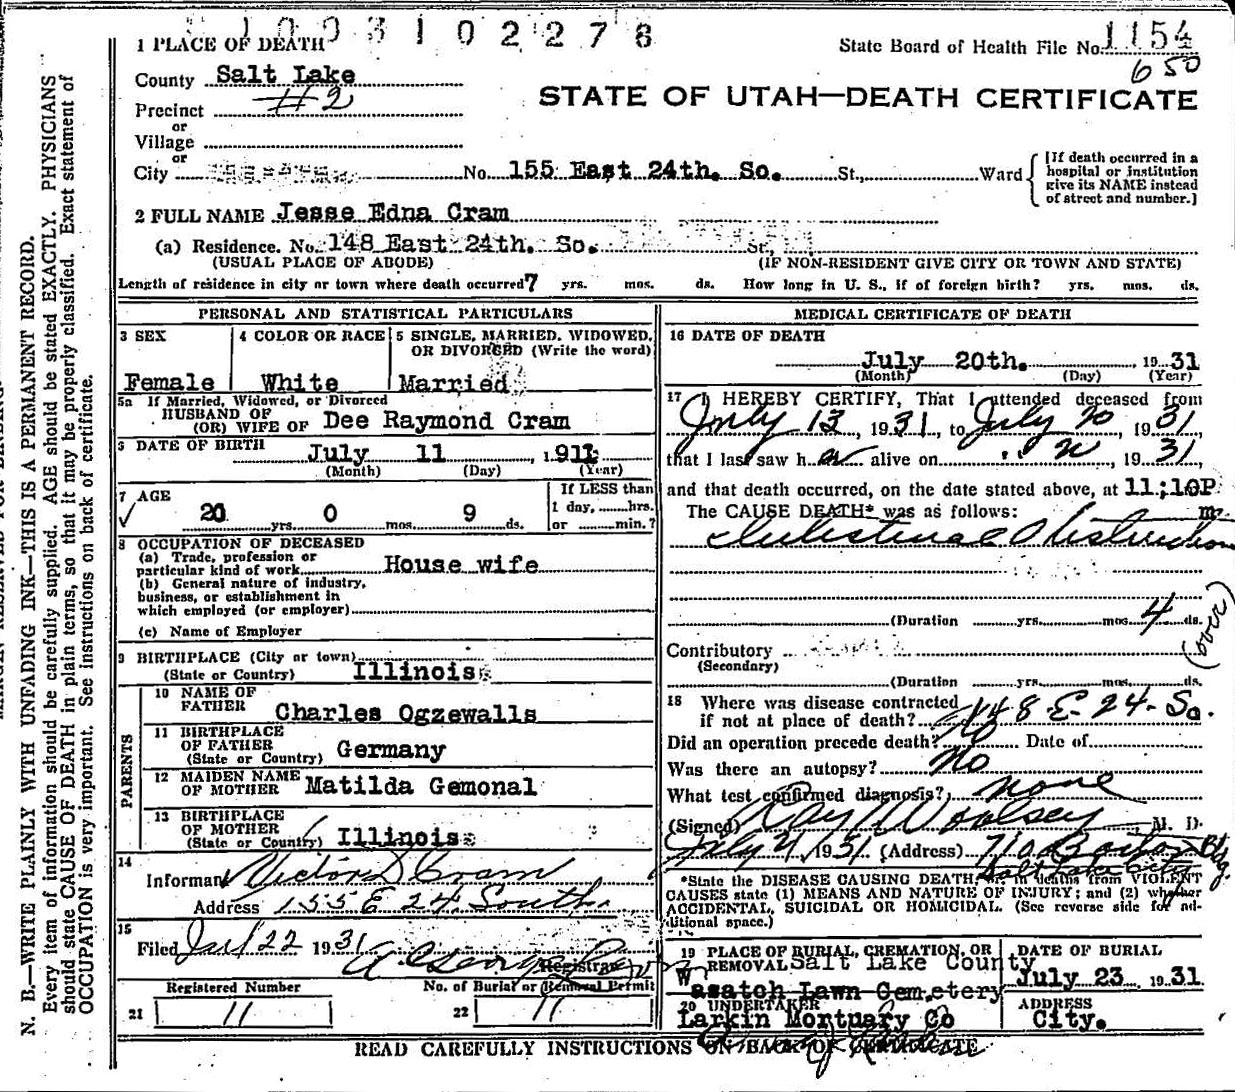 1003102278
1 PLACE OF DEATH
State Board of Health File No. 1154
650
County Salt Lake
Precinct #2
STATE OF UTAH—DEATH CERTIFICATE
or
Village
or
City No. 155 East 24th. So. St., Ward
[If death occurred in a hospital or institution give its NAME instead of street and number.]
2 FULL NAME Jesse Edna Cram
(a) Residence. No. 148 East 24th. So. St.,
(USUAL PLACE OF ABODE) (IF NON-RESIDENT GIVE CITY OR TOWN AND STATE)
Length of residence in city or town where death occurred 7 yrs. mos. ds. How long in U. S., if of foreign birth? yrs. mos. ds.
PERSONAL AND STATISTICAL PARTICULARS
3 SEX
Female
4 COLOR OR RACE
White
5 SINGLE, MARRIED, WIDOWED, OR DIVORCED (Write the word)
Married
5a If Married, Widowed, or Divorced
HUSBAND OF
(OR) WIFE OF Dee Raymond Cram
6 DATE OF BIRTH
July 11 1911
(Month) (Day) (Year)
7 AGE
20 yrs. 0 mos. 9 ds.
If LESS than
1 day, hrs.
or min.?
8 OCCUPATION OF DECEASED
(a) Trade, profession or
particular kind of work House wife
(b) General nature of industry,
business, or establishment in
which employed (or employer)
(c) Name of Employer
9 BIRTHPLACE (City or town)
(State or Country) Illinois
PARENTS
10 NAME OF
FATHER Charles Ogzewalls
11 BIRTHPLACE
OF FATHER
(State or Country) Germany
12 MAIDEN NAME
OF MOTHER Matilda Gemonal
13 BIRTHPLACE
OF MOTHER
(State or Country) Illinois
14
Informant Victor D Cram
Address 155 E 24. South
15
Filed 22 1931
Registrar
Registered Number
21 11
No. of Burial or Removal Permit
22 11
MEDICAL CERTIFICATE OF DEATH
16 DATE OF DEATH
July 20th. 1931
(Month) (Day) (Year)
17 I HEREBY CERTIFY, That I attended deceased from
July 13, 1931, to July 20, 1931,
that I last saw her alive on " 20, 1931,
and that death occurred, on the date stated above, at 11:10P m.
The CAUSE DEATH* was as follows:
Intestinal Obstruction
(Duration yrs. mos. 4 ds.
(over)
Contributory
(Secondary)
(Duration yrs. mos. ds.
18 Where was disease contracted
if not at place of death? 148 E- 24- So.
Did an operation precede death? No Date of
Was there an autopsy? No
What test confirmed diagnosis? none
(Signed) Ray Woolsey M. D.
July 21, 1931 (Address) 710 Boston Bldg.
Salt Lake City
*State the DISEASE CAUSING DEATH, or, in deaths from VIOLENT
CAUSES state (1) MEANS AND NATURE OF INJURY; and (2) whether
ACCIDENTAL, SUICIDAL OR HOMICIDAL. (See reverse side for additional space.)
19 PLACE OF BURIAL, CREMATION, OR
REMOVAL Salt Lake County
Wasatch Lawn Cemetery
DATE OF BURIAL
July 23 1931
20 UNDERTAKER
Larkin Mortuary Co
ADDRESS
City.
READ CAREFULLY INSTRUCTIONS ON BACK OF CERTIFICATE
N. B.—WRITE PLAINLY WITH UNFADING INK—THIS IS A PERMANENT RECORD.
Every item of information should be carefully supplied. AGE should be stated EXACTLY. PHYSICIANS
should state CAUSE OF DEATH in plain terms, so that it may be properly classified. Exact statement of
OCCUPATION is very important. See instructions on back of certificate.